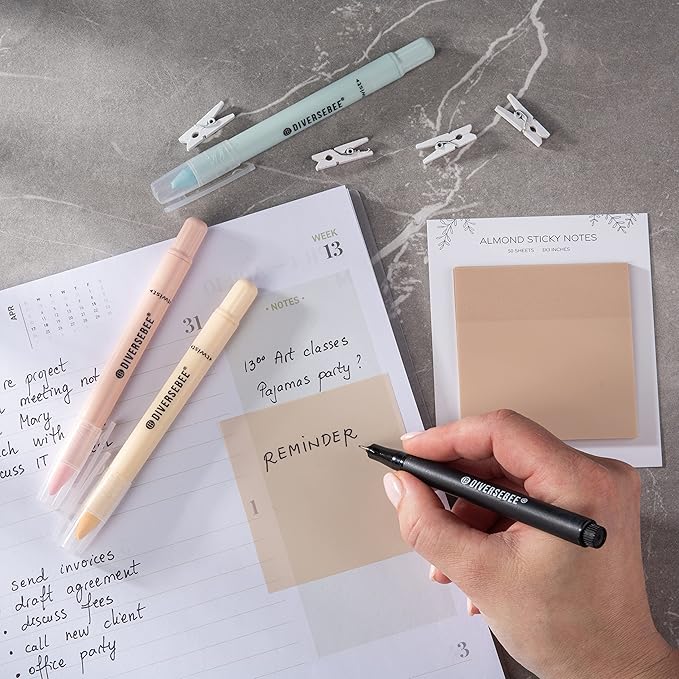 DIVERSEBEE®
TWIST
WEEK
13
ALMOND STICKY NOTES
50 SHEETS 3X3 INCHES
APR
31
• NOTES •
13⁰⁰ Art classes
Pajamas party ?
TWIST
DIVERSEBEE®
TWIST
DIVERSEBEE®
REMINDER
re project
meeting not
Mary
with
cuss IT
DIVERSEBEE®
1
send invoices
draft agreement
• discuss fees
• call new client
• office party
3